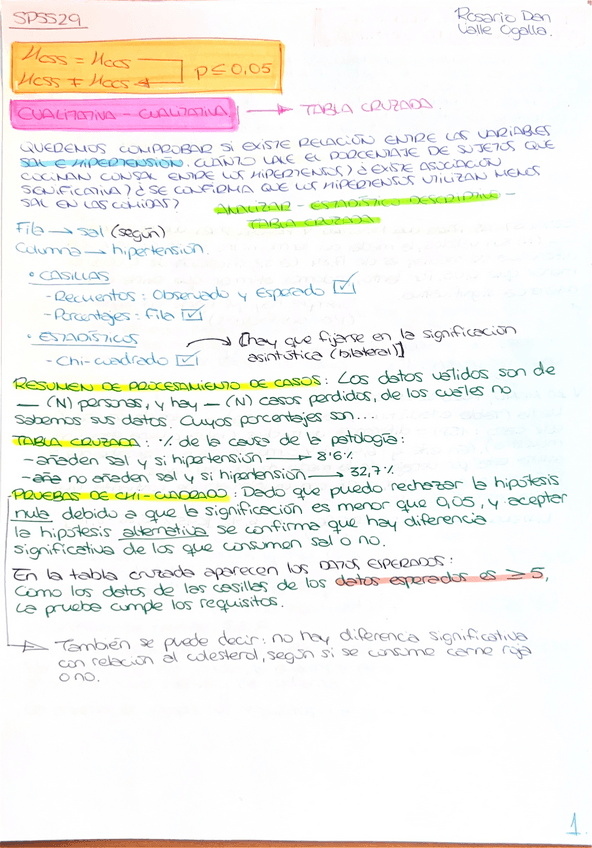 SPSS29
Rosario Dan
Valle Ogalla.
μCSS = μCCS
μCSS ≠ μCCS
p ≤ 0,05
CUALITATIVA - CUALITATIVA → TABLA CRUZADA.
QUEREMOS COMPROBAR SI EXISTE RELACIÓN ENTRE LAS VARIABLES
SAL E HIPERTENSIÓN. CUÁNTO VALE EL PORCENTAJE DE SUJETOS QUE
COCINAN CON SAL ENTRE LOS HIPERTENSOS? ¿EXISTE ASOCIACIÓN
SIGNIFICATIVA? ¿SE CONFIRMA QUE LOS HIPERTENSOS UTILIZAN MENOS
SAL EN LAS COMIDAS?
ANALIZAR - ESTADÍSTICO DESCRIPTIVO -
TABLA CRUZADA
Fila → sal (según)
Columna → hipertensión.
• CASILLAS
- Recuentos: Observado y esperado ☑
- Porcentajes: Fila ☑
• ESTADÍSTICOS
- Chi-cuadrado ☑
[hay que fijarse en la significación
asintótica (bilateral)]
RESUMEN DE PROCESAMIENTO DE CASOS: Los datos válidos son de
— (N) personas, y hay — (N) casos perdidos, de los cuáles no
sabemos sus datos. Cuyos porcentajes son...
TABLA CRUZADA: % de la causa de la patología:
- añaden sal y si hipertensión → 8'6%
- no añaden sal y si hipertensión → 32,7%
- PRUEBAS DE CHI-CUADRADO: Dado que puedo rechazar la hipótesis
nula debido a que la significación es menor que 0,05, y aceptar
la hipótesis alternativa se confirma que hay diferencia
significativa de los que consumen sal o no.
En la tabla cruzada aparecen los DATOS ESPERADOS:
Como los datos de las casillas de los datos esperados es ≥ 5,
la prueba cumple los requisitos.
→ También se puede decir: no hay diferencia significativa
con relación al colesterol, según si se consume carne roja
o no.
1